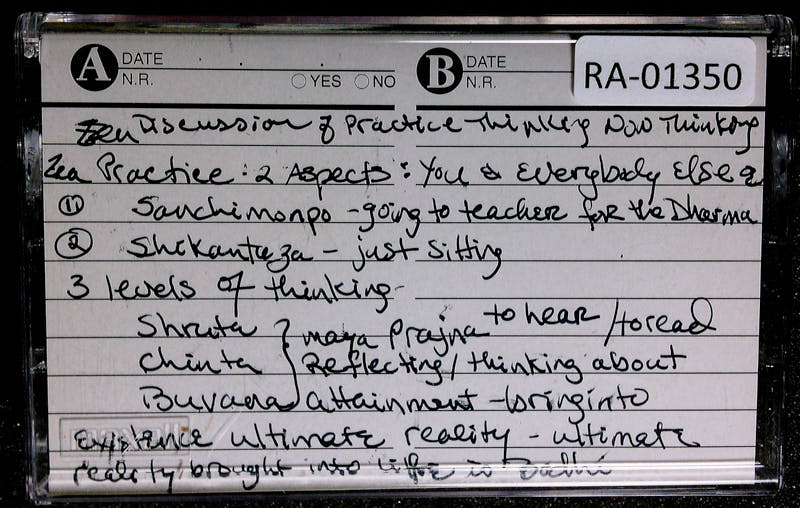 A DATE
N.R. YES NO
B DATE
N.R.
RA-01350
Zen Discussion of Practice Thinking Non Thinking
Zen Practice: 2 Aspects: You & Everybody Else
① Sanchimonpo - going to teacher for the Dharma
② Shikantaza - just sitting
3 levels of thinking-
Shruta } maya Prajna to hear / to read
Chinta } Reflecting / thinking about
Buvana } attainment - bring into
existence ultimate reality - ultimate
reality brought into life is